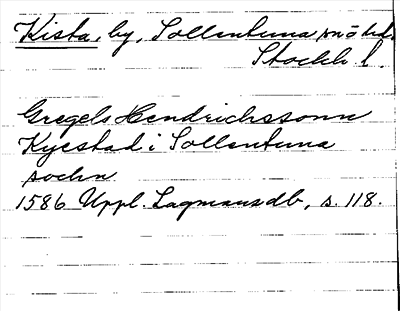 Kista, by, Sollentuna sn ö hd.
Stockh l.
Gregels Hendrichssonn
Kyestad i Sollentuna
sochn
1586 Uppl. Lagmansdb, s. 118.